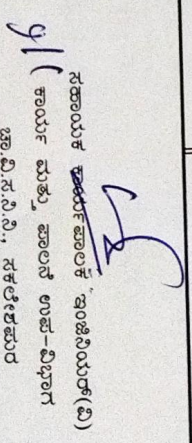 ಸಹಾಯಕ ಕಾರ್ಯಪಾಲಕ ಇಂಜಿನಿಯರ್(ವಿ)
ಕಾರ್ಯ ಮತ್ತು ಪಾಲನೆ ಉಪ-ವಿಭಾಗ
ಚಾ.ವಿ.ಸ.ನಿ.ನಿ., ಸಕಲೇಶಪುರ